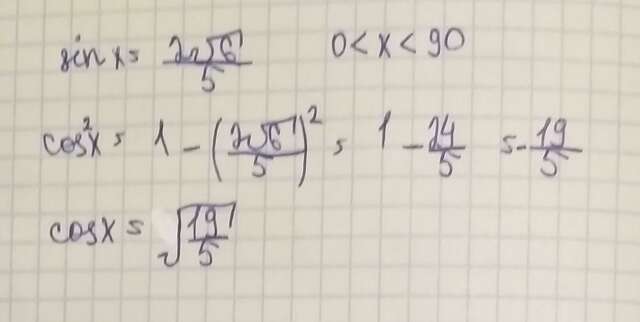 sin x = 2√6/5 0 < x < 90
cos²x = 1 - (2√6/5)² = 1 - 24/5 = -19/5
cos x = √19/5